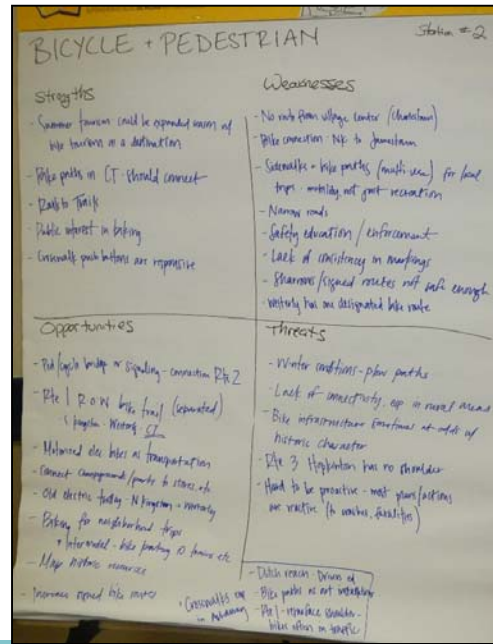 BICYCLE + PEDESTRIAN
Station #2
Strengths
- Summer tourism could be expanded
bike tourism as a destination
- Bike paths in CT should connect
- Rails to Trails
- Public interest in biking
- Crosswalk push buttons are responsive
Weaknesses
- No route from village center
- Bike connection NK to Jamestown
- Sidewalks + bike paths (multi-use) for local
trips - mobility, not just recreation
- Narrow roads
- Safety education / enforcement
- Lack of consistency in markings
- Sharrows/signed routes not safe enough
- Westerly has one designated bike route
Opportunities
- Ped/cycle bridge or signaling - connection Rte 2
- Rte 1 ROW bike trail (separated)
Kingston - Westerly - CT
- Motorized elec bikes as transportation
- Connect campgrounds/parks to stores, etc
- Old electric - N Kingston - Westerly
- Biking for neighborhood trips
* Intermodal - bike parking @ trains etc
- Map historic resources
- Increase signed bike routes
* Crosswalks
in
Threats
- Winter conditions - plow paths
- Lack of connectivity, esp in rural areas
- Bike infrastructure sometimes at odds w/
historic character
- Rte 3 Hopkinton has no shoulder
- Hard to be proactive - most plans/actions
are reactive (to crashes, fatalities)
- Dutch reach - Driver ed
- Bike paths as not
- Rte 1 - resurface shoulder -
bikes often in traffic